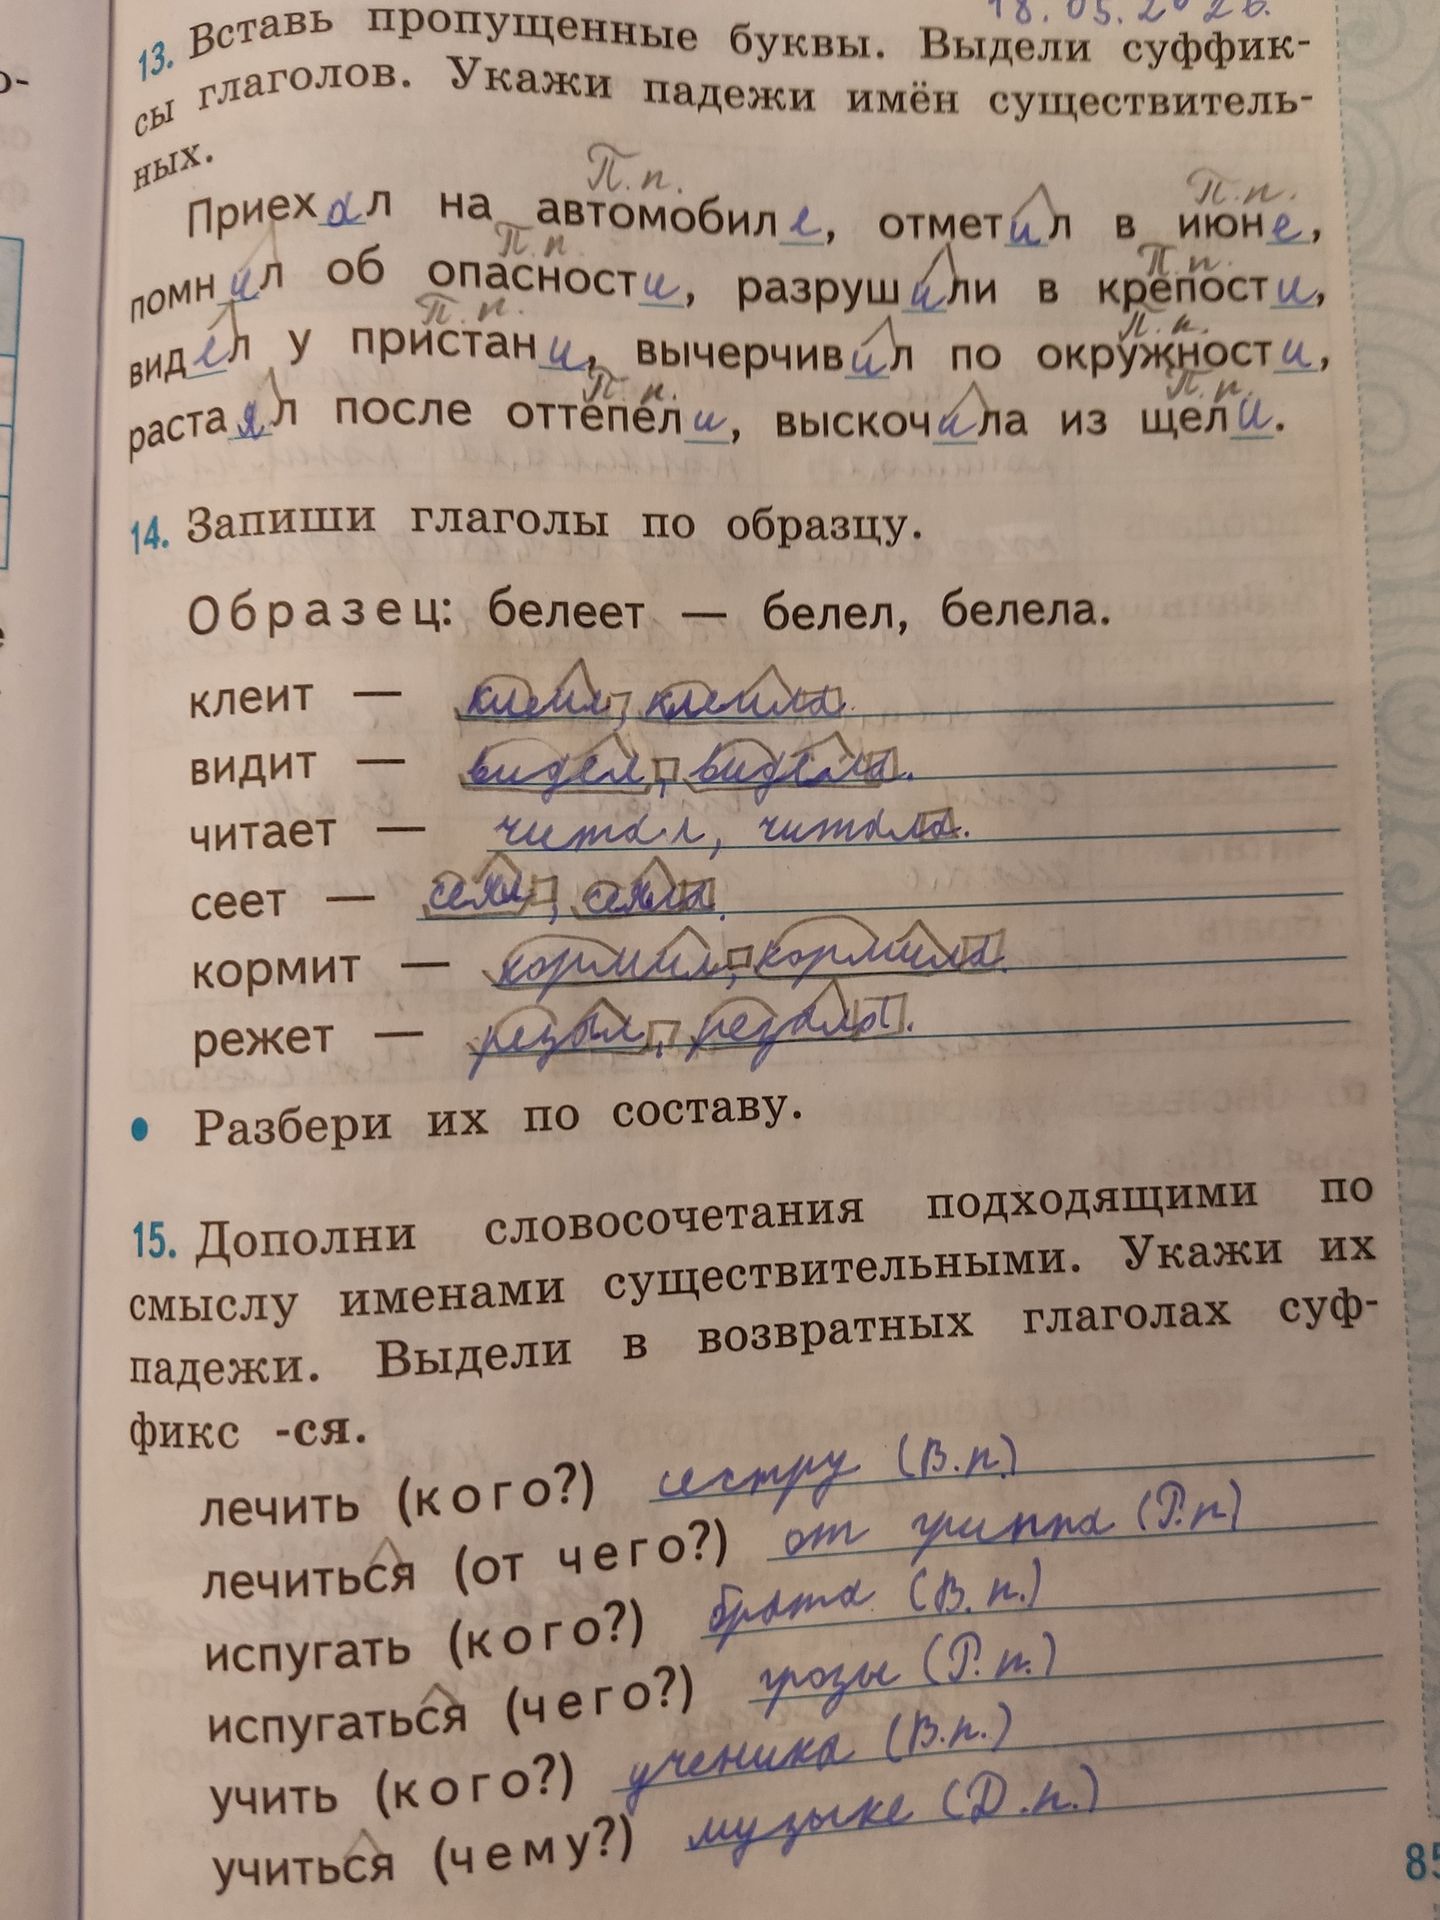 18.05.2026.
13. Вставь пропущенные буквы. Выдели суффик-
сы глаголов. Укажи падежи имён существитель-
ных.
П.п. П.п.
Приехал на автомобиле, отметил в июне,
П.п. П.п.
помнил об опасности, разрушили в крепости,
П.п. П.п.
видел у пристани, вычерчивил по окружности,
П.п. П.п.
растаял после оттепели, выскочила из щели.
14. Запиши глаголы по образцу.
Образец: белеет — белел, белела.
клеит — клеил, клеила.
видит — видел, видела.
читает — читал, читала.
сеет — сеял, сеяла.
кормит — кормил, кормила.
режет — резал, резала.
• Разбери их по составу.
15. Дополни словосочетания подходящими по
смыслу именами существительными. Укажи их
падежи. Выдели в возвратных глаголах суф-
фикс -ся.
лечить (кого?) сестру (В.п.)
лечиться (от чего?) от гриппа (Р.п)
испугать (кого?) брата (В.п.)
испугаться (чего?) грозы (Р.п.)
учить (кого?) ученика (В.п.)
учиться (чему?) музыке (Д.п.)
85